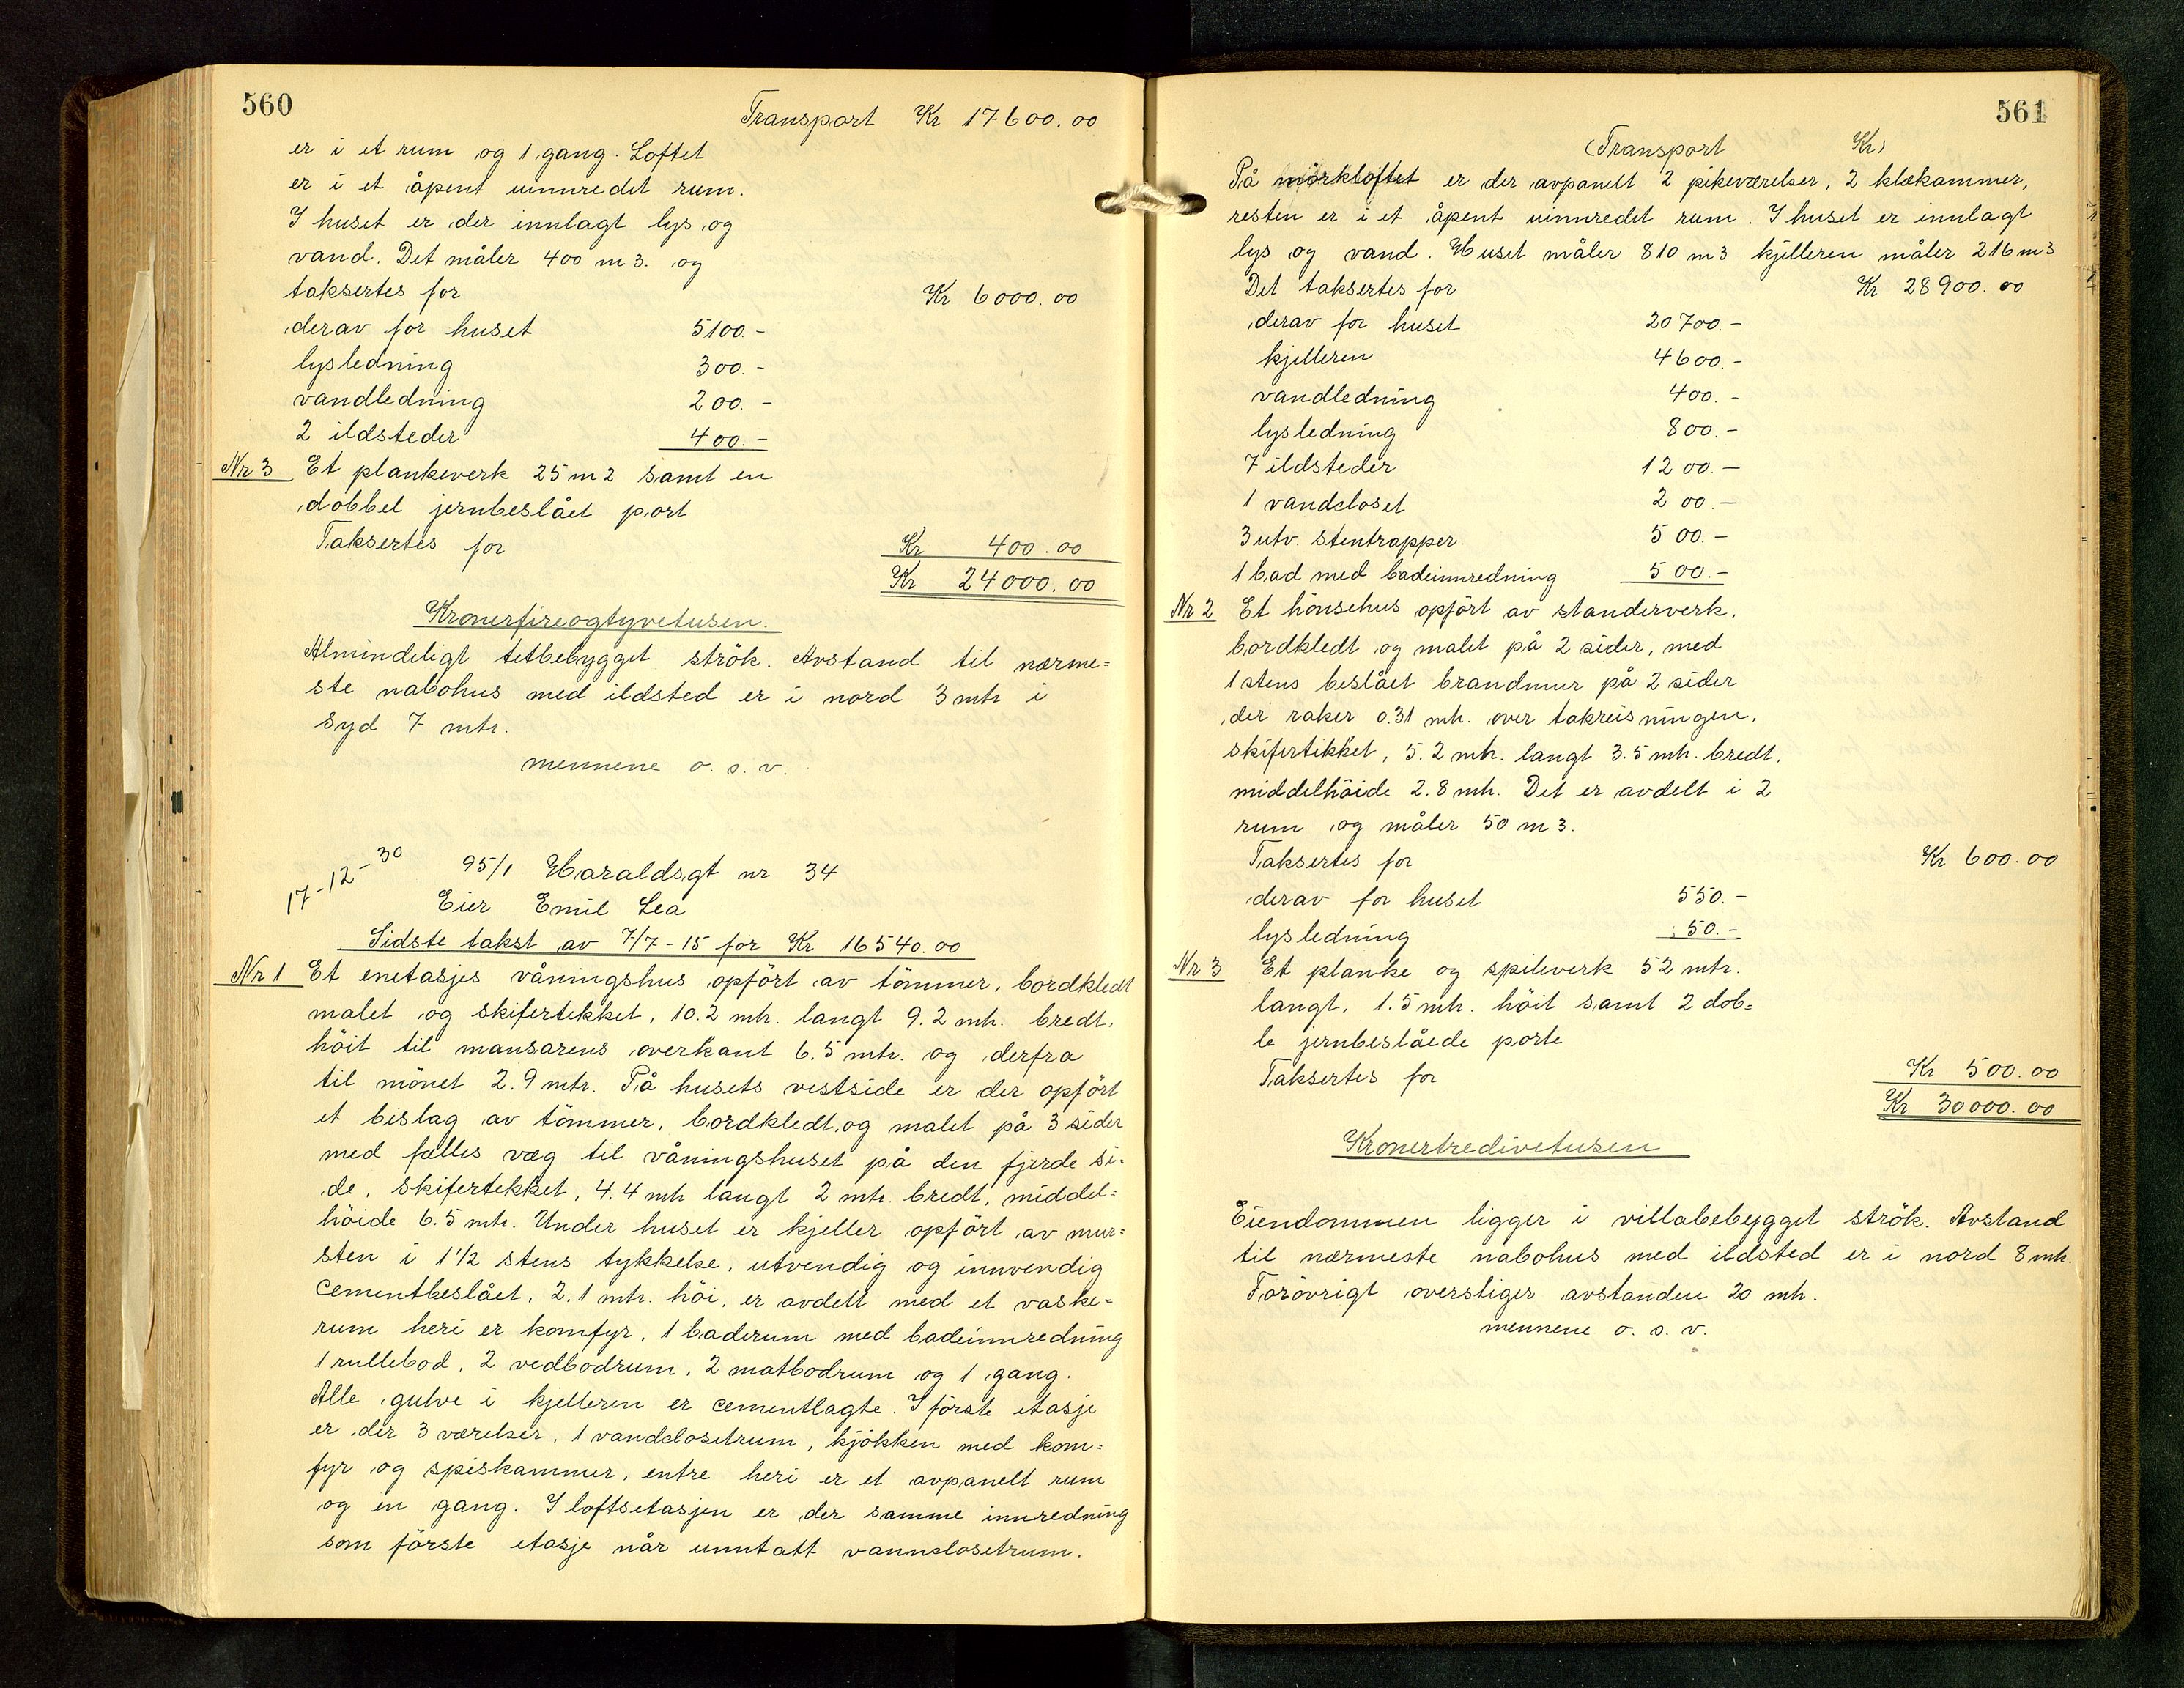 560
Transport Kr 17600.00
er i et rum og 1 gang. Loftet
er i et åpent uinnredet rum.
I huset er der innlagt lys og
vand. Det måler 400 m3. og
taksertes for Kr 6000.00
derav for huset 5100.-
lysledning 300.-
vandledning 200.-
2 ildsteder 400.-
Nr 3 Et plankeverk 25 m2 samt en
dobbel jernbeslået port
Taksertes for Kr 400.00
Kr 24000.00
Kronerfireogtyvetusen.
Almindeligt tetbebygget strök. Avstand til nærme=
ste nabohus med ildsted er i nord 3 mtr i
syd 7 mtr.
mennene o. s. v.
17-12-30 95/1 Haraldsgt nr 34
Eier Emil Lea
Sidste takst av 7/7-15 for Kr 16540.00
Nr 1 Et enetasjes våningshus opfört av tömmer, bordkledt
malet og skifertekket, 10.2 mtr. langt 9.2 mtr. bredt,
höit til mansarens overkant 6.5 mtr. og derfra
til mönet 2.9 mtr. På husets vestside er der opfört
et bislag av tömmer, bordkledt og malet på 3 sider
med felles væg til våningshuset på den fjerde si-
de, skifertekket, 4.4 mtr langt 2 mtr. bredt, middel=
höide 6.5 mtr. Under huset er kjeller opfört av mur=
sten i 1 1/2 stens tykkelse, utvendig og innvendig
cementbeslået, 2.1 mtr. höi, er avdelt med et vaske-
rum heri er komfyr, 1 baderum med badeinnredning
1 rullebod, 2 vedbodrum, 2 matbodrum og 1 gang.
Alle gulve i kjelleren er cementlagte. I förste etasje
er der 3 værelser, 1 vandclosetrum, kjökken med kom=
fyr og spiskammer, entre heri er et avpanelt rum
og en gang. I loftsetasjen er der samme innredning
som förste etasje når unntatt vannclosetrum.
561
(Transport Kr)
På mörkloftet er der avpanelt 2 pikeværelser, 2 klækammer,
resten er i et åpent uinnredet rum. I huset er innlagt
lys og vand. Huset måler 810 m3 kjelleren måler 216 m3
Det taksertes for Kr 28900.00
derav for huset 20700.-
kjelleren 4600.-
vandledning 400.-
lysledning 800.-
7 ildsteder 1200.-
1 vandcloset 200.-
3 utv. stentrapper 500.-
1 bad med badeinnredning 500.-
Nr 2 Et hönsehus opfört av standerverk,
bordkledt og malet på 2 sider, med
1 stens beslået brandmur på 2 sider
der raker 0.31 mtr. over takreisningen,
skifertikket, 5.2 mtr. langt 3.5 mtr. bredt,
middelhöide 2.8 mtr. Det er avdelt i 2
rum og måler 50 m3.
Taksertes for Kr 600.00
derav for huset 550.-
lysledning 50.-
Nr 3 Et planke og spileverk 52 mtr.
langt, 1.5 mtr. höit samt 2 dob=
le jernbeslåede porte
Taksertes for Kr 500.00
Kr 30000.00
Kronertredivetusen
Eiendommen ligger i villabebygget strök. Avstand
til nærmeste nabohus med ildsted er i nord 8 mtr.
Forövrigt overstiger avstanden 20 mtr.
mennene o. s. v.